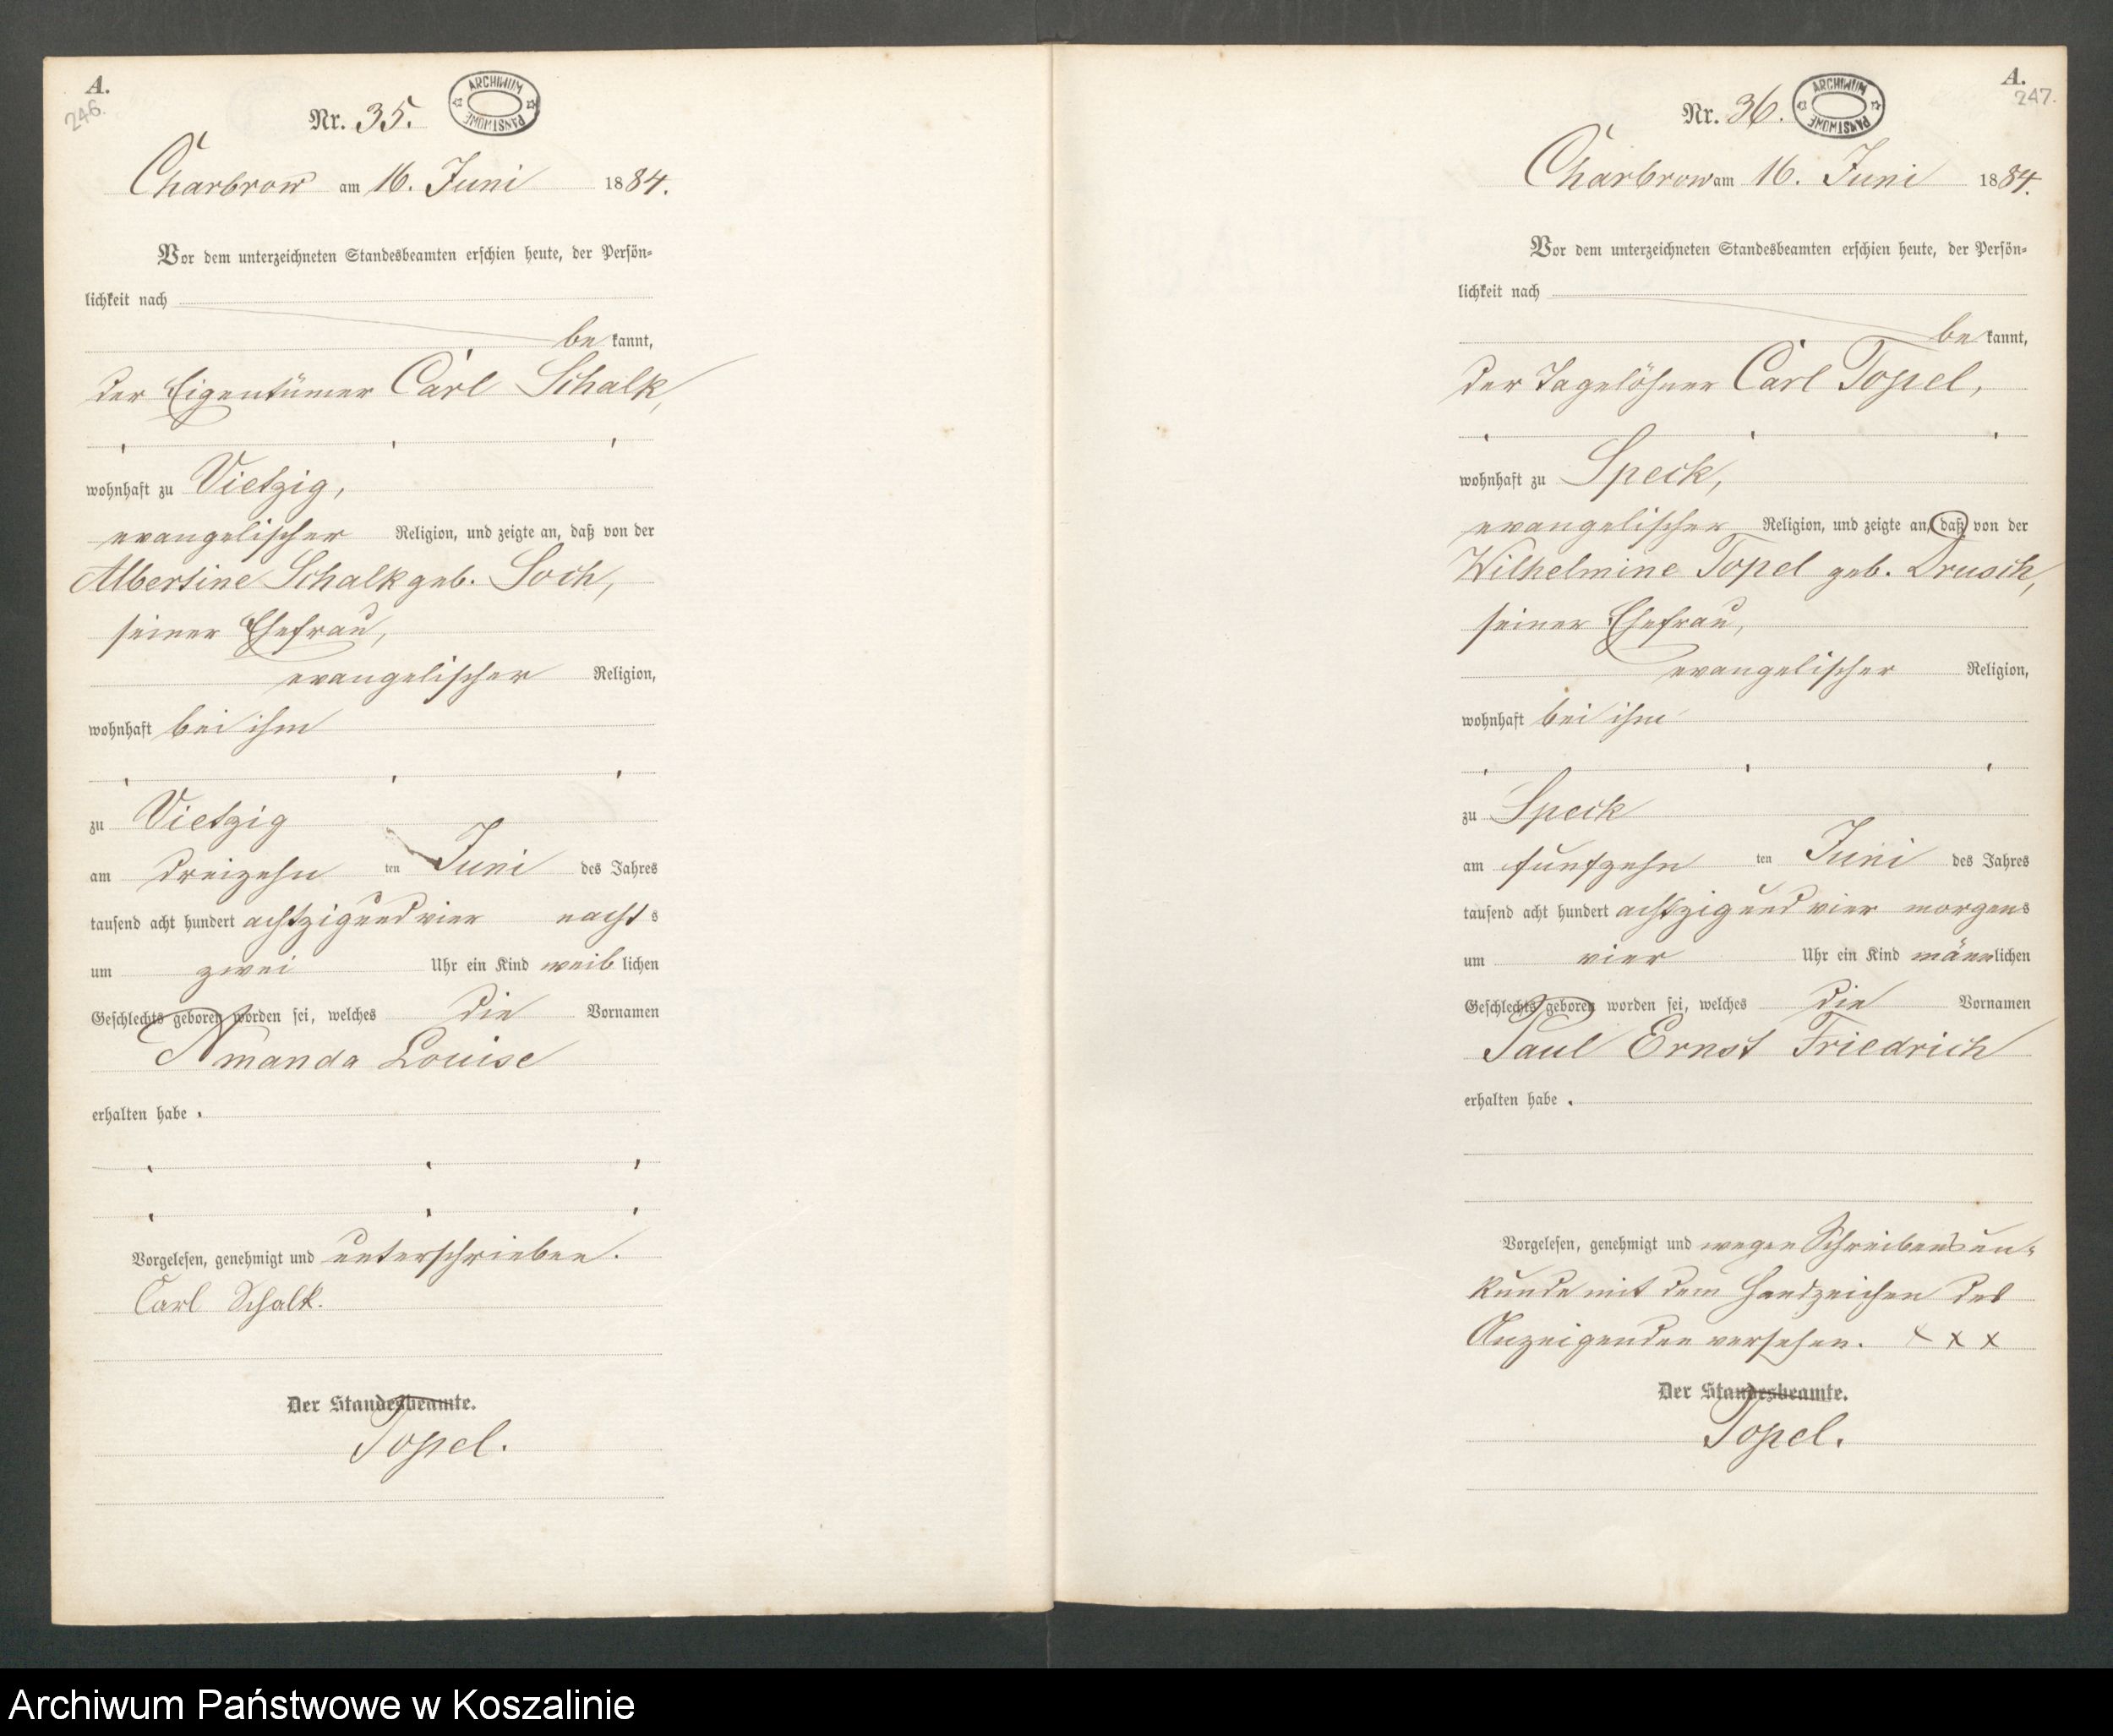 A.
246.
Nr. 35.
ARCHIWUM PAŃSTWOWE
Charbrow am 16. Juni 1884.
Vor dem unterzeichneten Standesbeamten erschien heute, der Persön-
lichkeit nach
bekannt,
der Eigentümer Carl Schalk,
wohnhaft zu Vietzig,
evangelischer Religion, und zeigte an, daß von der
Albertine Schalk geb. Soch,
seiner Ehefrau,
evangelischer Religion,
wohnhaft bei ihm
zu Vietzig
am dreizehnten Juni des Jahres
tausend acht hundert achtzig und vier nachts
um zwei Uhr ein Kind weiblichen
Geschlechts geboren worden sei, welches die Vornamen
Amanda Louise
erhalten habe.
Vorgelesen, genehmigt und unterschrieben.
Carl Schalk.
Der Standesbeamte.
Topel.
A.
247.
Nr. 36.
ARCHIWUM PAŃSTWOWE
Charbrow am 16. Juni 1884.
Vor dem unterzeichneten Standesbeamten erschien heute, der Persön-
lichkeit nach
bekannt,
der Tagelöhner Carl Topel,
wohnhaft zu Speck,
evangelischer Religion, und zeigte an, daß von der
Wilhelmine Topel geb. Drusch,
seiner Ehefrau,
evangelischer Religion,
wohnhaft bei ihm
zu Speck
am fünfzehnten Juni des Jahres
tausend acht hundert achtzig und vier morgens
um vier Uhr ein Kind männlichen
Geschlechts geboren worden sei, welches die Vornamen
Paul Ernst Friedrich
erhalten habe.
Vorgelesen, genehmigt und wegen Schreibensun-
kunde mit dem Handzeichen des
Anzeigenden versehen. x x x
Der Standesbeamte.
Topel.
Archiwum Państwowe w Koszalinie